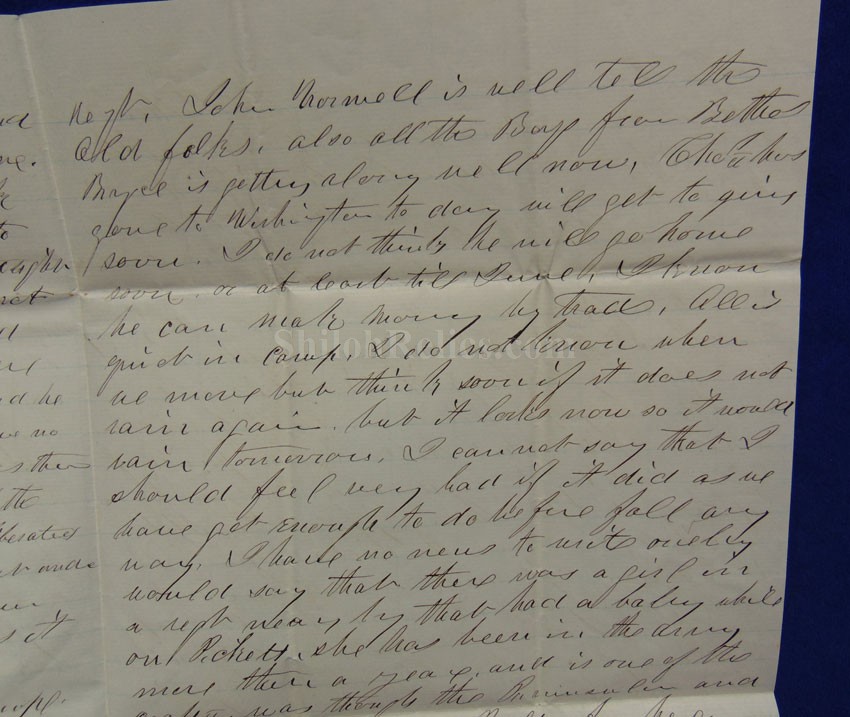 Regt, John Mormell is well tell the
old folks, also all the Boys from Bethel
Boyce is getting along well now, Cha has
gone to Washington to day will get to going
soon. I do not think he will go home
soon. or at least till June, I know
he can make money by trad, All is
quiet in camp I do not know when
we move but think soon if it does not
rain again. but it looks now so it would
rain tomorrow, I cannot say that I
should feel very bad if it did as we
have got enough to do before fall any
way, I have no news to writ only
would say that there was a girl in
a regt near by that had a baby while
on Pickett, she has been in the army
more then a year, and is one of the
was though the Peninsular and
ShilohRelics.com